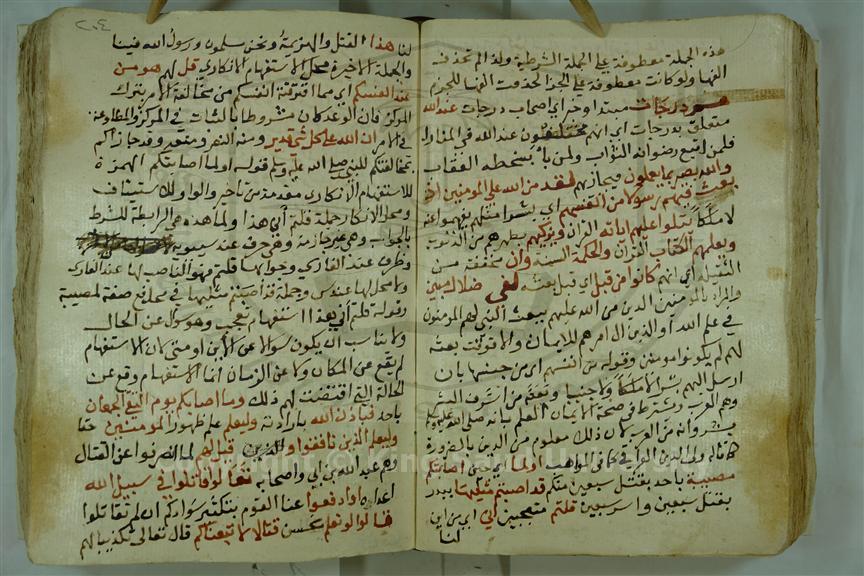 هذه الجملة معطوفة على الجملة الشرطية ولذا لم تحذف
الفها ولو كانت معطوفة على الجزا لحذفت الفها للجزم
هم درجات مبتدا وخبر اي اصحاب درجات عند الله
متعلق بدرجات اي انهم مختلفون عند الله في المنازل
فلمن اتبع رضوانه الثواب ولمن باء بسخطه العقاب
والله بصير بما يعملون فيجازيهم لقد من الله علي المومنين اذ
بعث فيهم رسولا من انفسهم اي بشرا مثلهم ليفهموا عنه
لا ملكا يتلوا عليهم اياته القران ويزكيهم يطهرهم من الذنوب
ويعلمهم الكتاب القران والحكمة السنة وان مخففة من
الثقيلة اي انهم كانوا من قبل اي قبل بعثه لفي ضلال مبين
والمراد بالمومنين الذين من الله عليهم ببعث النبي لهم المومنون
في علم الله او الذين ال امرهم للايمان والا فوقت بعثه
لهم لم يكونوا مومنين وقوله من انفسهم اي من جنسها بان
ارسل اليهم بشرا لا ملكا ولا جنيا
وهم العرب ويشترط في صحة الايمان العلم بانه صلى الله عليه وسلم
بشر وانه من العرب لان ذلك معلوم من الدين بالضرورة
اولما اصابتكم
مصيبة باحد بقتل سبعين منكم قد اصبتم مثليها ببدر
بقتل سبعين واسر سبعين قلتم متعجبين اني اي من اين
لنا
٢٠٤
لنا هذا القتل والهزيمة ونحن مسلمون ورسول الله فينا
والجملة الاخيرة محل الاستفهام الانكاري قل لهم هو من
عند انفسكم اي مما اقترفته انفسكم من مخالفة الامر بترك
المركز فان الوعد كان مشروطا بالثبات في المركز والمطاوعة
في الامر ان الله على كل شي قدير ومنه النصر ومنعه وقد جازاكم
بمخالفتكم للنبي صلى الله عليه وسلم قوله اولما اصابتكم الهمزة
للاستفهام الانكاري مقدمة من تاخير والواو للاستيناف
ومحل الانكار جملة قلتم أني هذا ولما هذه هي الرابطة للشرط
بالجواب وهي غير جازمة وهي حرف عند سيبويه
وظرف عند الفارسي وجوابها قلتم فهو الناصب لها عند الفارسي
ولا محل لها عند س وجملة قد اصبتم مثليها في محل رفع صفة لمصيبة
وقوله قلتم أني هذا استفهام تعجيب وهو سؤال عن الحال
ولا يناسب ان يكون سوالا عن الاين او متى لان الاستفهام
لم يقع عن المكان ولا عن الزمان انما الاستفهام وقع عن
الحالة التي اقتضت لهم ذلك وما اصابكم يوم التقي الجمعان
باحد فباذن الله بارادته وليعلم علم ظهور المومنين حقا
وليعلم الذين نافقوا والذين قيل لهم لما انصرفوا عن القتال
وهم عبد الله بن ابي واصحابه تعالوا قاتلوا في سبيل الله
اعداه او ادفعوا عنا القوم بتكثير سوادكم ان لم تقاتلوا
قالوا لو نعلم نحسن قتالا لاتبعناكم قال تعالى تكذيبا لهم